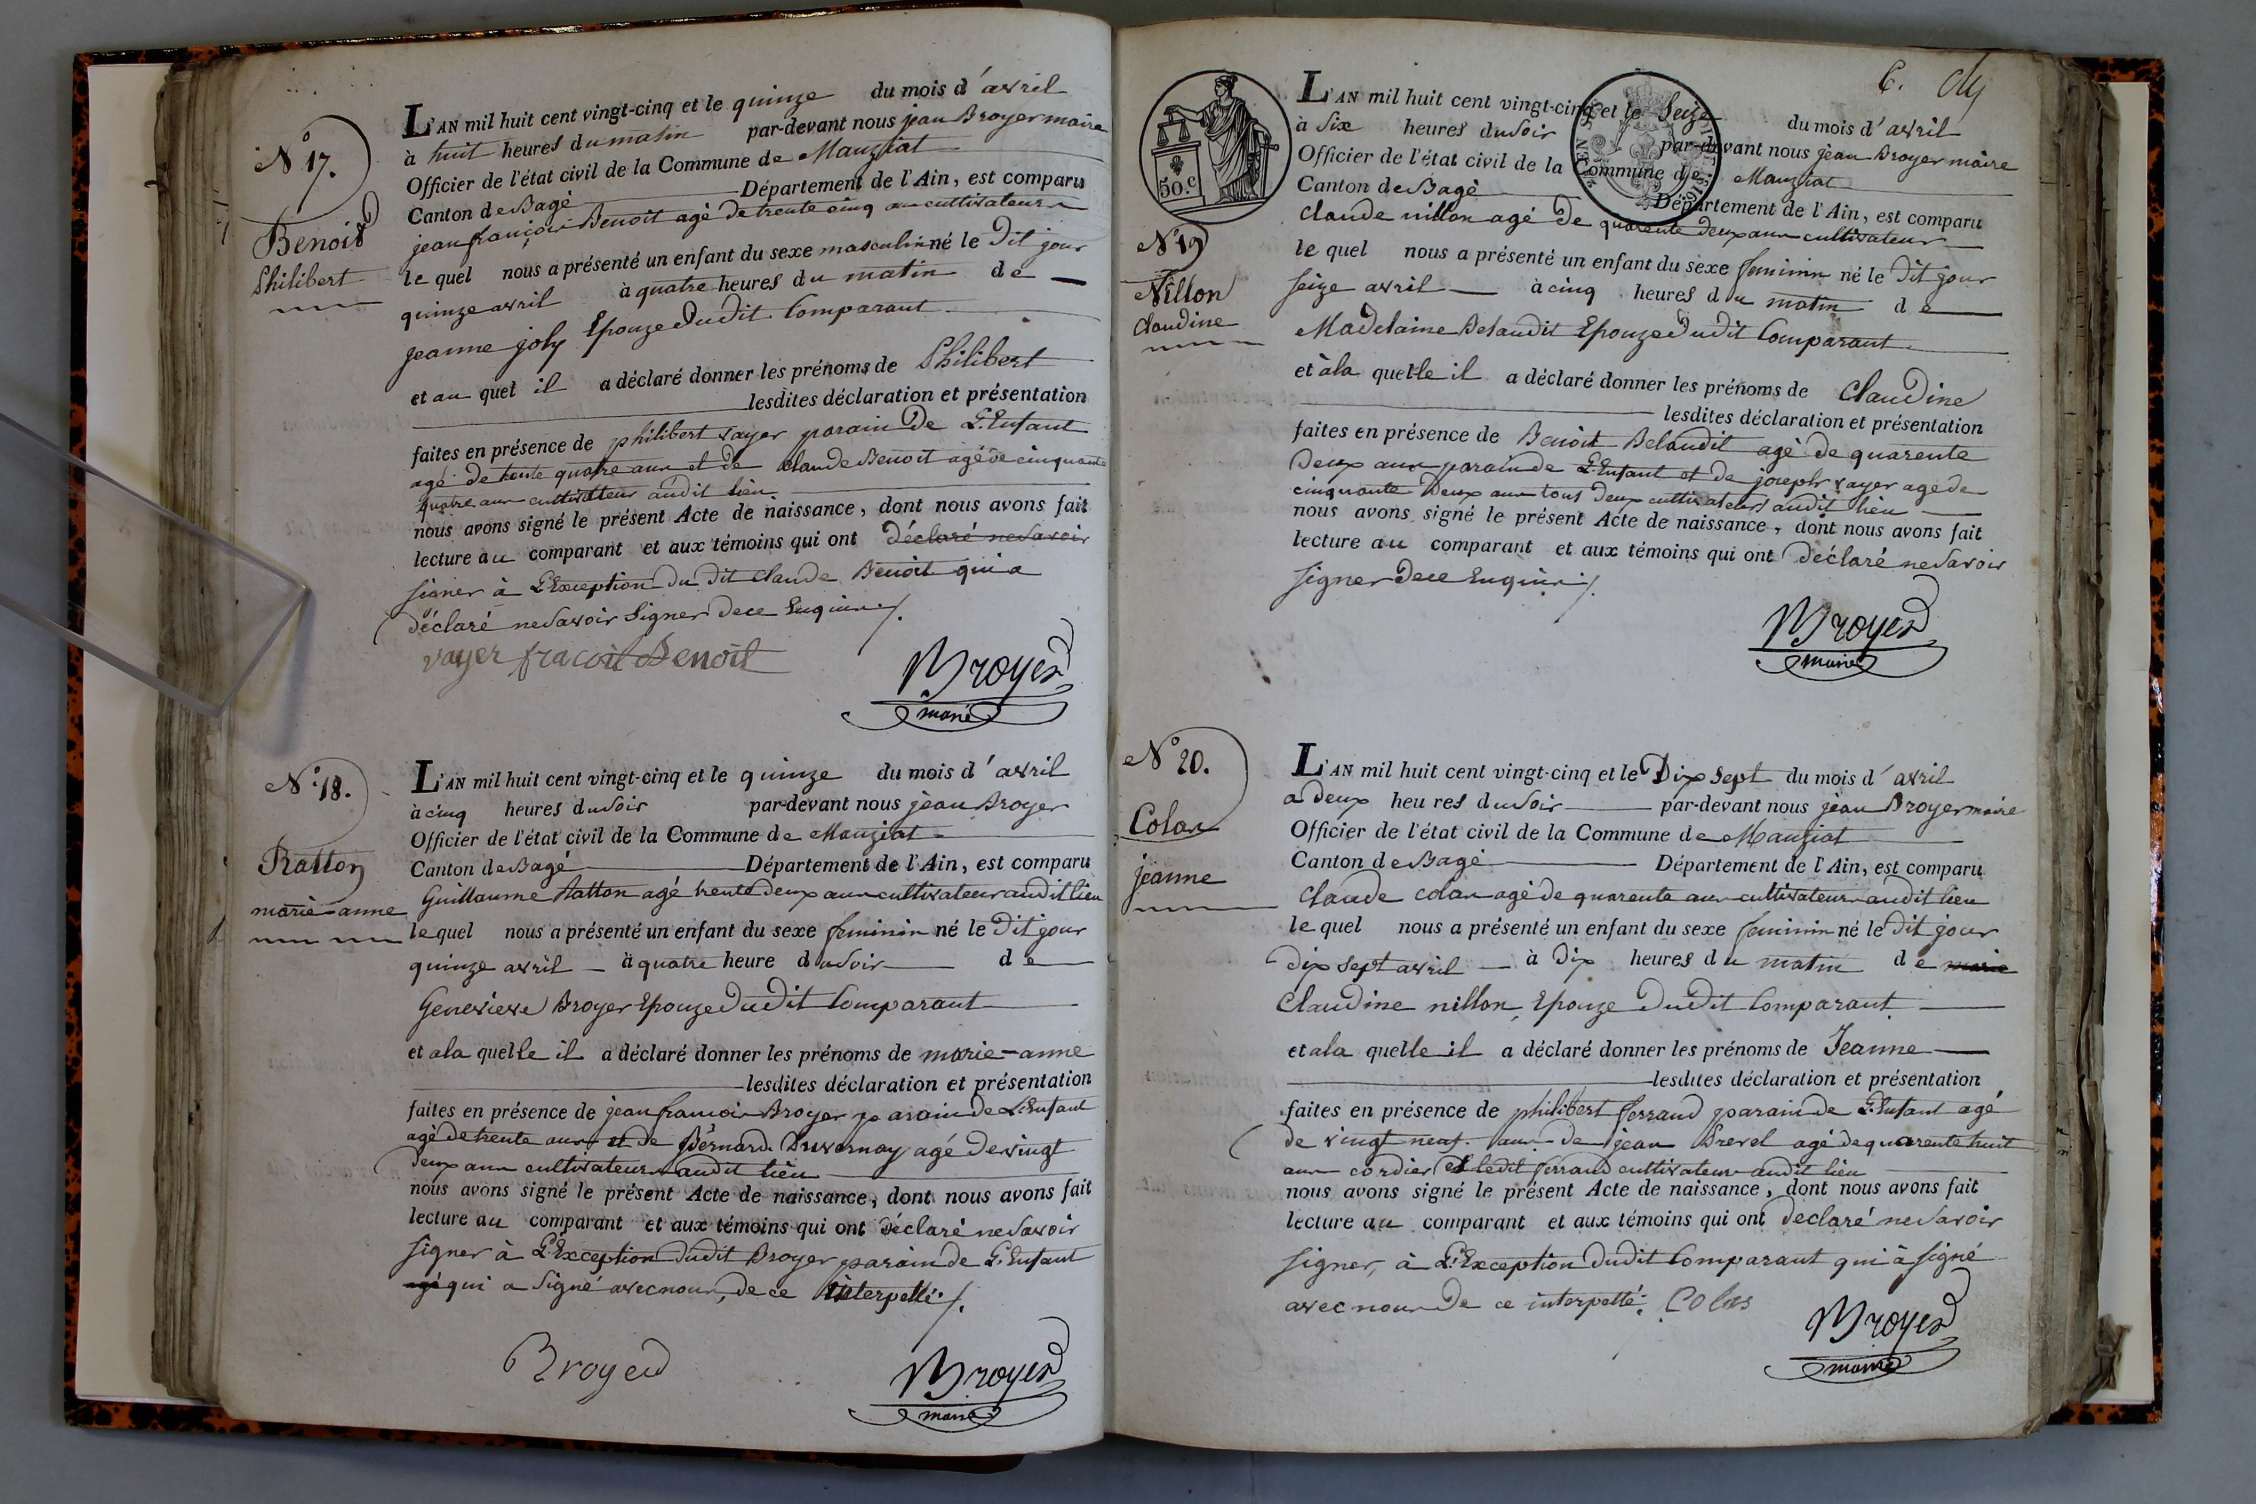 N° 17.
Benoit
Philibert
L'AN mil huit cent vingt-cinq et le quinze du mois d'avril
à huit heures du matin par-devant nous jean Broyer maire
Officier de l'état civil de la Commune de Manziat
Canton de Bagé Département de l'Ain, est comparu
jean françois Benoit agé de trente cinq ans cultivateur
le quel nous a présenté un enfant du sexe masculin né le Dit jour
quinze avril à quatre heures du matin de
jeanne joly Epouze Dudit Comparant
et au quel il a déclaré donner les prénoms de Philibert
lesdites déclaration et présentation
faites en présence de philibert vayer parain De L'Enfant
agé de trente quatre ans et de claude Benoit agé de cinquante
quatre ans cultivateur audit lieu
nous avons signé le présent Acte de naissance, dont nous avons fait
lecture au comparant et aux témoins qui ont déclaré ne Savoir
signer à L'Exception Du dit Claude Benoit qui a
déclaré ne Savoir Signer De ce Enquis ./.
vayer fracoit Benoit
Broyer
maire
N° 18.
Ratton
marie-anne
L'AN mil huit cent vingt-cinq et le quinze du mois d'avril
à cinq heures du Soir par-devant nous jean Broyer
Officier de l'état civil de la Commune de Manziat
Canton de Bagé Département de l'Ain, est comparu
Guillaume Ratton agé trente Deux ans cultivateur audit lieu
le quel nous a présenté un enfant du sexe feminin né le Dit jour
quinze avril à quatre heure du Soir de
Genevieve Broyer Epouze Dudit Comparant
et a la quelle il a déclaré donner les prénoms de marie-anne
lesdites déclaration et présentation
faites en présence de jean francois Broyer parain de L'Enfant
agé de trente ans et de Bernard Duvernay agé de vingt
Deux ans cultivateurs audit lieu
nous avons signé le présent Acte de naissance, dont nous avons fait
lecture au comparant et aux témoins qui ont déclaré ne Savoir
signer à L'Exception Dudit Broyer parain de L'Enfant
agé qui a Signé avec nous, de ce interpellé ./.
Broyer
Broyer
maire
6.
50.c
N° 19
Nillon
Claudine
L'AN mil huit cent vingt-cinq et le Seize du mois d'avril
à Six heures du Soir par-devant nous jean Broyer maire
Officier de l'état civil de la Commune de Manziat
Canton de Bagé Département de l'Ain, est comparu
Claude nillon agé De quarente Deux ans cultivateur
le quel nous a présenté un enfant du sexe feminin né le Dit jour
seize avril à cinq heures du matin de
Madelaine Belaudit Epouze Dudit Comparant
et à la quelle il a déclaré donner les prénoms de Claudine
lesdites déclaration et présentation
faites en présence de Benoit Belaudit agé de quarente
Deux ans parain de L'Enfant et de joseph vayer agé de
cinquante Deux ans tous Deux cultivateurs audit lieu
nous avons signé le présent Acte de naissance, dont nous avons fait
lecture au comparant et aux témoins qui ont Déclaré ne Savoir
signer De ce Enquis ./.
Broyer
maire
N° 20.
Colas
jeanne
L'AN mil huit cent vingt-cinq et le Dix sept du mois d'avril
a deux heures du Soir par-devant nous jean Broyer maire
Officier de l'état civil de la Commune de Manziat
Canton de Bagé Département de l'Ain, est comparu
Claude colas agé de quarente ans cultivateur audit lieu
le quel nous a présenté un enfant du sexe feminin né le Dit jour
Dix sept avril à Dix heures du matin de marie
Claudine nillon, Epouze Dudit Comparant
et a la quelle il a déclaré donner les prénoms de Jeanne
lesdites déclaration et présentation
faites en présence de philibert ferraud parain de L'Enfant agé
de vingt neuf ans De jean Brevel agé de quarente huit
ans cordier et ledit ferraud cultivateur audit lieu
nous avons signé le présent Acte de naissance, dont nous avons fait
lecture au comparant et aux témoins qui ont declaré ne Savoir
signer, à L'Exception Dudit Comparant qui à signé
avec nous De ce interpellé. Colas
Broyer
maire